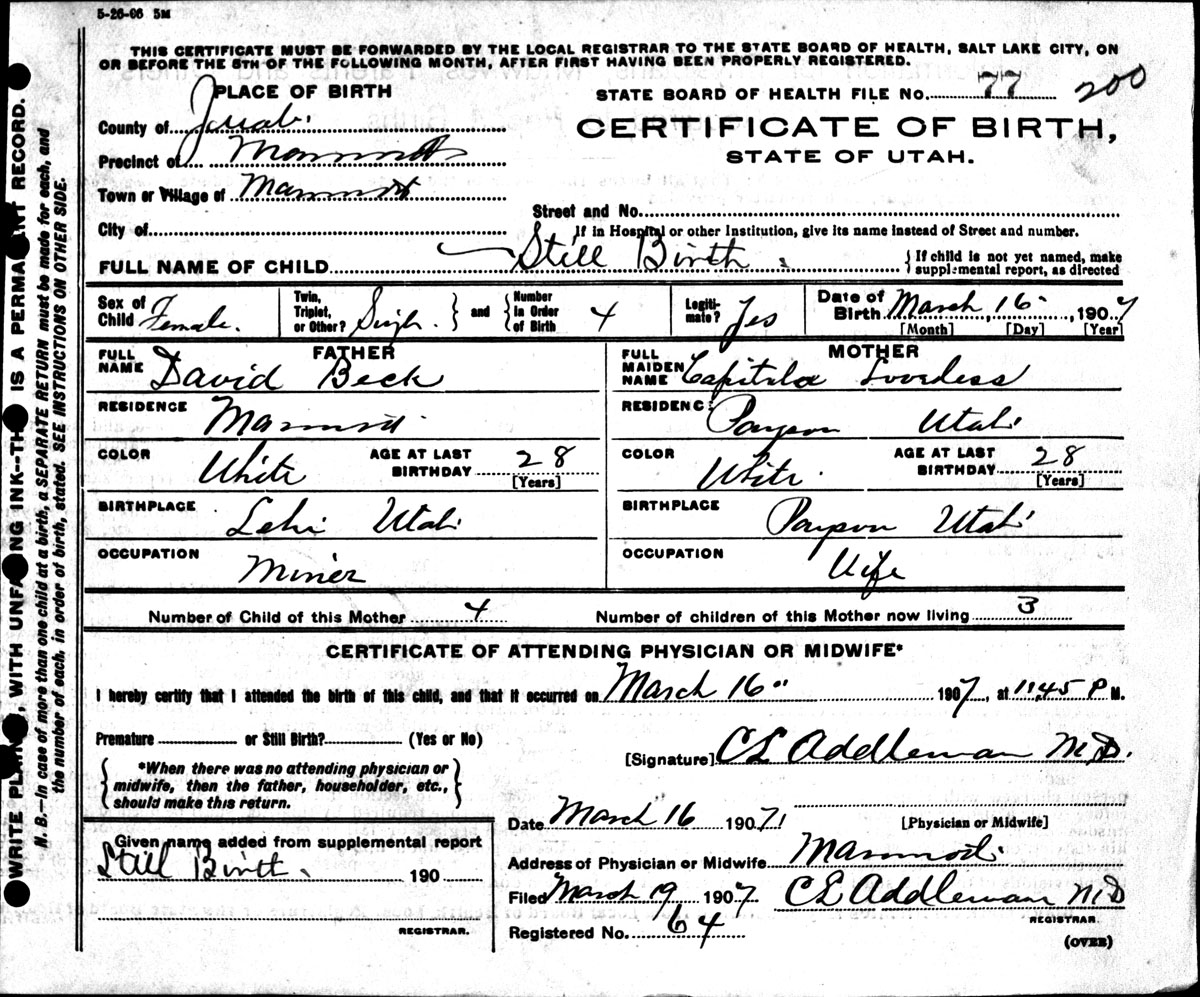 5-26-06 5M
THIS CERTIFICATE MUST BE FORWARDED BY THE LOCAL REGISTRAR TO THE STATE BOARD OF HEALTH, SALT LAKE CITY, ON
OR BEFORE THE 5TH OF THE FOLLOWING MONTH, AFTER FIRST HAVING BEEN PROPERLY REGISTERED.
PLACE OF BIRTH
STATE BOARD OF HEALTH FILE NO. 77 200
County of Juab.
CERTIFICATE OF BIRTH,
Precinct of Mammoth
STATE OF UTAH.
Town or Village of Mammoth
Street and No.
City of
If in Hospital or other Institution, give its name instead of Street and number.
FULL NAME OF CHILD Still Birth.
If child is not yet named, make
supplemental report, as directed
Sex of Child Female. Twin, Triplet, or Other? Singl. and Number in Order of Birth 4 Legitimate? Yes Date of Birth March, 16, 1907
[Month] [Day] [Year]
FATHER
FULL NAME David Beck
RESIDENCE Mammoth
COLOR White AGE AT LAST BIRTHDAY 28
[Years]
BIRTHPLACE Lehi Utah
OCCUPATION Miner
MOTHER
FULL MAIDEN NAME Capitola Loveless
RESIDENCE Payson Utah
COLOR White. AGE AT LAST BIRTHDAY 28
[Years]
BIRTHPLACE Payson Utah
OCCUPATION Wife
Number of Child of this Mother 4 Number of children of this Mother now living 3
CERTIFICATE OF ATTENDING PHYSICIAN OR MIDWIFE*
I hereby certify that I attended the birth of this child, and that it occurred on March 16" 1907, at 11.45 P M.
Premature or Still Birth? (Yes or No)
[Signature] C L Addleman M.D.
*When there was no attending physician or
midwife, then the father, householder, etc.,
should make this return.
Date March 16 1907 [Physician or Midwife]
Given name added from supplemental report
Still Birth. 190
REGISTRAR.
Address of Physician or Midwife Mammoth
Filed March 19 1907 C L Addleman M.D
REGISTRAR.
Registered No. 64
(OVER)
WRITE PLAINLY, WITH UNFADING INK--THIS IS A PERMANENT RECORD.
N. B.--In case of more than one child at a birth, a SEPARATE RETURN must be made for each, and
the number of each, in order of birth, stated. SEE INSTRUCTIONS ON OTHER SIDE.